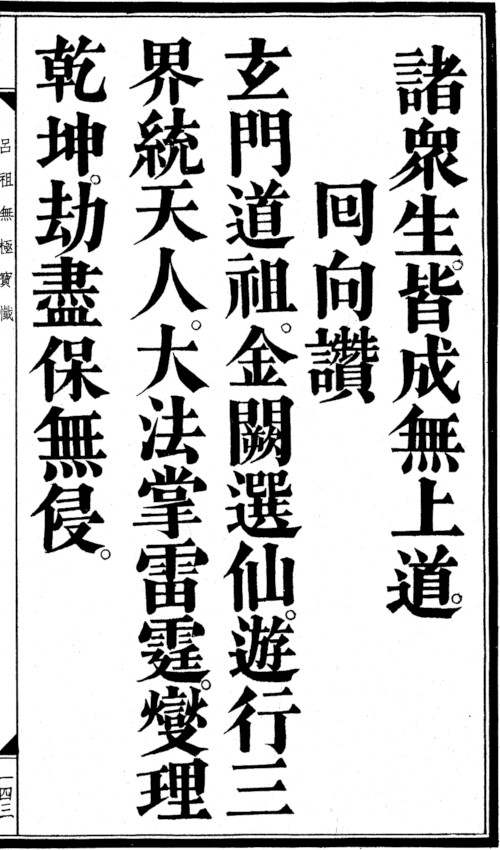 諸眾生。皆成無上道。
回向讚
玄門道祖。金闕選仙。遊行三
界統天人。大法掌雷霆。燮理
乾坤。劫盡保無侵。
呂祖無極寶懺
一四三